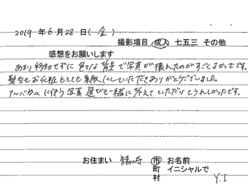 2019年6月28日(金)
撮影項目 成人 七五三 その他
感想をお願いします
あまり移動せずに色々な背景で写真が撮れたのがすごくよかったです。
髪型もお化粧もとても素敵にしていただきありがとうございました。
アルバムに使う写真選びも一緒に考えていただいてうれしかったです。
お住まい 市 お名前
町 イニシャルで
村 Y.I